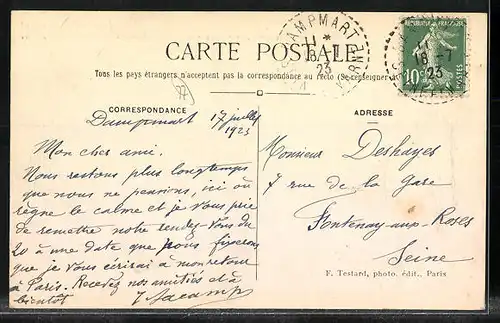 CARTE POSTALE
Tous les pays étrangers n'acceptent pas la correspondance au recto (Se renseigner
CORRESPONDANCE
ADRESSE
DAMPMART
11 *
18 -7
23
MARNE
18 -7
23
10c
POSTES
Dampmart 17 juillet
1923
Mon cher ami.
Nous restons plus longtemps
que nous ne pensions, ici où
règne le calme et je vous prie
de remettre notre rendez-vous du
20 à une date que nous fixerons
que je vous écrirai à mon retour
à Paris. Recevez nos amitiés et à
bientôt
Monsieur Deshayes
7 rue de la Gare
Fontenay-aux-Roses
Seine
F. Testard, photo. édit., Paris